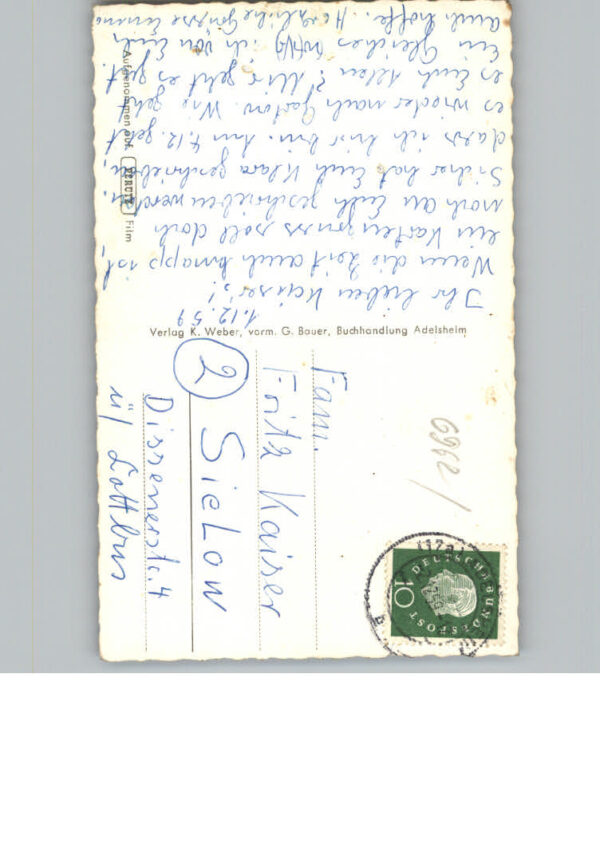 1.12.59
Ihr lieben Kaiser's!
Wenn die Zeit auch knapp ist,
ein Kartengruss soll doch
noch an Euch geschrieben werden.
Sicher hat Euch Klara geschrieben,
dass ich hier bin. Am 4.12. geht
es wieder nach Wie geht
es Euch allen? Mir geht es gut.
Ein Gleiches ich von Euch
auch hoffe. Herzliche Grüsse
Aufgenommen auf PERUTZ Film
Verlag K. Weber, vorm. G. Bauer, Buchhandlung Adelsheim
Fam.
Fritz Kaiser
(2) Sielow
Dissenerstr. 4
ü/ Cottbus
6962/
DEUTSCHE BUNDESPOST
10
(17a)